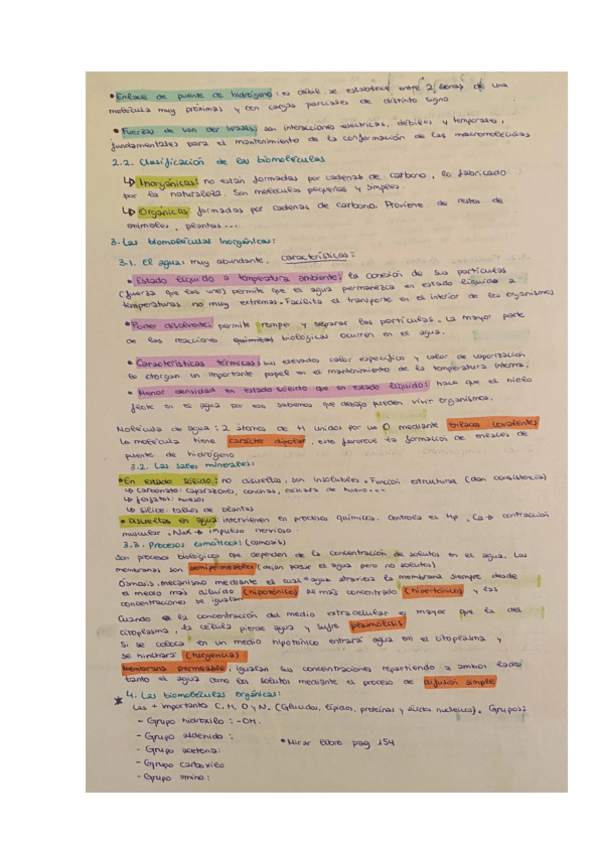 • Enlace de puente de hidrógeno: es débil. se establece entre 2 zonas de una
molécula muy próximas y con cargas parciales de distinto signo
• Fuerzas de van der Waals: son interacciones eléctricas, débiles y temporales,
fundamentales para el mantenimiento de la conformación de las macromoléculas
2.2. Clasificación de las biomoléculas
↳ Inorgánicas: no están formadas por cadenas de carbono, lo fabricado
por la naturaleza. Son moléculas pequeñas y simples.
↳ Orgánicas: formadas por cadenas de carbono. Proviene de restos de
animales, plantas...
3. Las biomoléculas Inorgánicas:
3.1. El agua: muy abundante. características:
• Estado líquido a temperatura ambiente: la cohesión de sus partículas
(fuerza que las une) permite que el agua permanezca en estado líquido a
temperaturas no muy extremas. Facilita el transporte en el interior de los organismos
• Poder disolvente: permite romper y separar las partículas. La mayor parte
de las reacciones biológicas ocurren en el agua.
• Características térmicas: sus elevados calor específico y calor de vaporización
le otorgan un importante papel en el mantenimiento de la temperatura interna.
• Menor densidad en estado sólido que en estado líquido: hace que el hielo
flote en el agua por eso sabemos que debajo pueden vivir organismos.
Molécula de agua: 2 átomos de H unidos por un O mediante enlaces covalentes
la molécula tiene carácter dipolar, esto favorece la formación de enlaces de
puente de hidrógeno
3.2. Las sales minerales:
• En estado sólido: no disueltas, son insolubles. Función estructura (dan consistencia)
↳ Carbonato: caparazones, conchas, cáscara de huevo...
↳ fosfatos: huesos
↳ Sílice: tallos de plantas
• disueltas en agua: intervienen en procesos químicos. Controla el Hp, Ca → contracción
muscular, Na,K → impulso nervioso.
3.3. Procesos osmóticos: (osmosis)
Son procesos biológicos que dependen de la concentración de solutos en el agua. Las
membranas son semipermeables (dejan pasar el agua pero no solutos)
Ósmosis: mecanismo mediante el cual el agua atraviesa la membrana siempre desde
el medio más diluido (hipotónico) al más concentrado (hipertónico) y las
concentraciones se igualan
Cuando la concentración del medio extracelular es mayor que la del
citoplasma, la célula pierde agua y sufre plasmólisis
Si se coloca en un medio hipotónico entrará agua en el citoplasma y
se hinchará (turgencia)
Membrana permeable: igualan sus concentraciones repartiendo a ambos lados
tanto el agua como los solutos mediante el proceso de difusión simple
* 4. Las biomoléculas orgánicas:
Las + importante C, H, O y N. (Glúcidos, lípidos, proteínas y ácidos nucleicos). Grupos:
- Grupo hidroxilo: -OH.
- Grupo aldehido:
- Grupo acetona: • Mirar libro pag 154
- Grupo carboxilo
- Grupo amino: